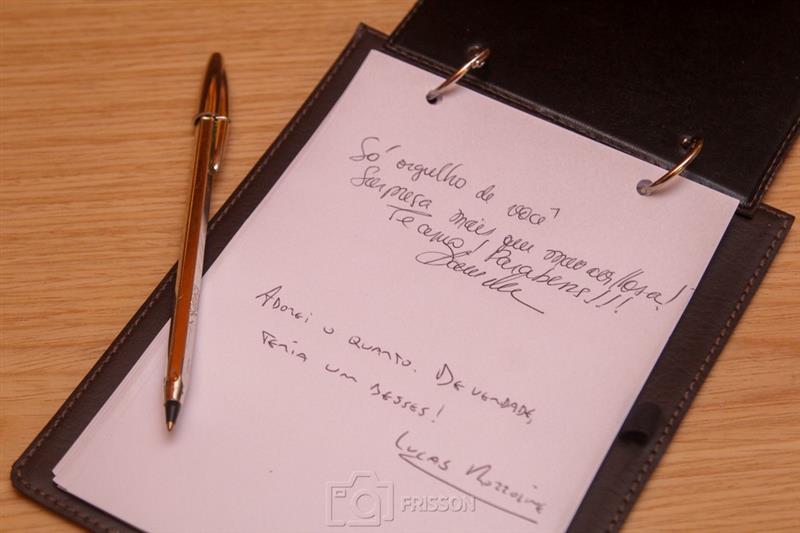 Só orgulho de você!
Surpresa mais que maravilhosa!
Te amo! Parabéns!!!
ADOREI O QUARTO. DE VERDADE,
TERIA UM DESSES!
LUCAS
FRISSON